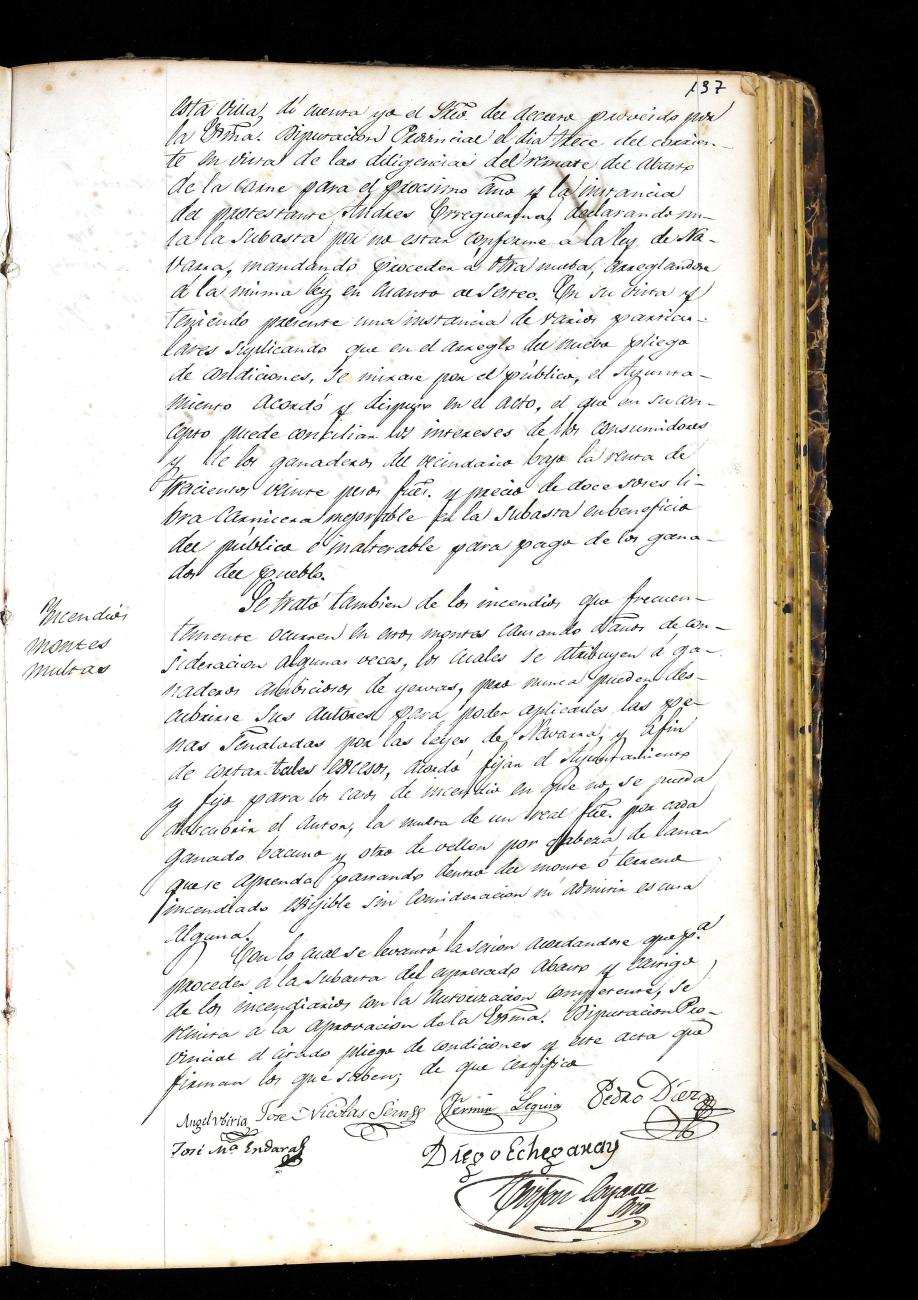 137
esta villa, dí cuenta yo el Srio. del decreto proveido por
la Exma. Diputacion Provincial el dia trece del corrien-
te en vista de las diligencias del remate del abasto
de la carne para el procsimo año y la instancia
del protestante Andres declarando nu-
la la subasta por no estar conforme a la ley de Na-
varra, mandando proceder á otra nueba, arreglandose
á la misma ley en cuanto al sesteo. En su vista y
teniendo presente una instancia de varios particu-
lares suplicando que en el arreglo del nuebo pliego
de condiciones, se mirase por el público, el Ayunta-
miento acordó y dispuso en el acto, el que en su con-
cepto puede conciliar los intereses de los consumidores
y de los ganaderos del vecindario bajo la renta de
trecientos veinte pesos ftes. y precio de doce sores li-
bra carnicera mejorable en la subasta en beneficio
del público é inalterable para pago de los gana-
dos del pueblo.
Incendios
montes
multas
Se trató tambien de los incendios que frecuen-
temente ocurren en esos montes causando daños de con-
sideracion algunas veces, los cuales se atribuyen á ga-
naderos ambiciosos de yervas, pero nunca pueden des-
cubrirse sus autores para poder aplicarles las pe-
nas señaladas por las leyes de Navarra, y á fin
de cortar tales escesos, acordó fijar el Ayuntamiento
y fijo para los casos de incendio en que no se pueda
descubrir el autor, la multa de un real fte. por cada
ganado bacuno y otro de vellon por cabeza de lanar
que se aprenda pastando dentro del monte ó terreno
incendiado exigible sin consideracion ni admitir escusa
alguna.
Con lo cual se levantó la sesion acordandose que pa.
proceder a la subasta del espresado abasto y castigo
de los incendiarios con la autorizacion competente, se
remita a la aprovacion de la Exma. Diputacion Pro-
vincial el citado pliego de condiciones y este acta que
firman los que saben; de que certifico
Angel Vbiria Jose Nicolas Fermin Seguia Pedro Diez
José Ma. Endara
Diego Echegaray
Srio